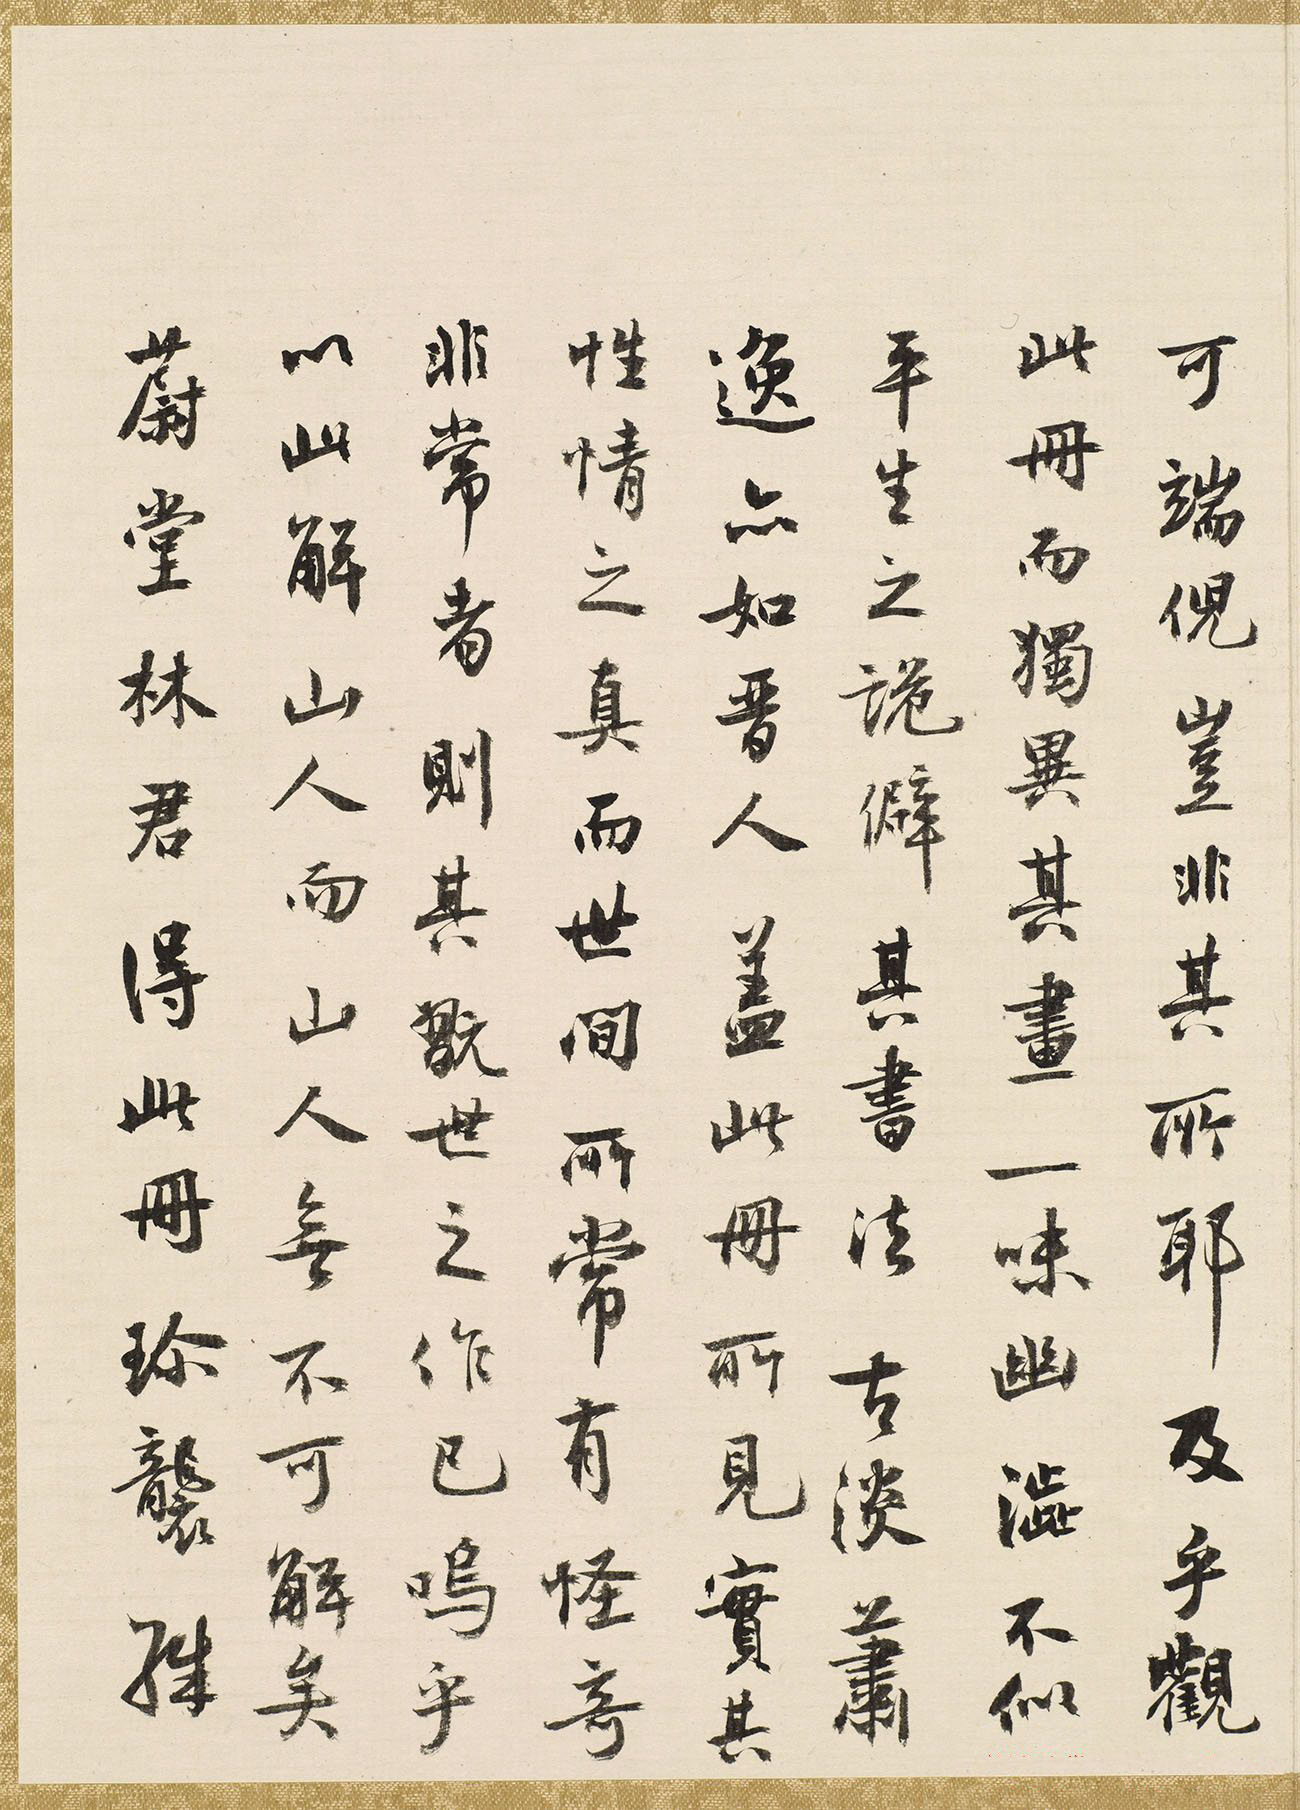 可端倪豈非其所耶及乎觀
此冊而獨異其畫一味幽澀不似
平生之詭僻其書法古淡蕭
逸亦如晉人蓋此冊所見實其
性情之真而世間所常有怪奇
非常者則其翫世之作已嗚乎
以此解山人而山人無不可解矣
蔚堂林君得此冊珍襲殊